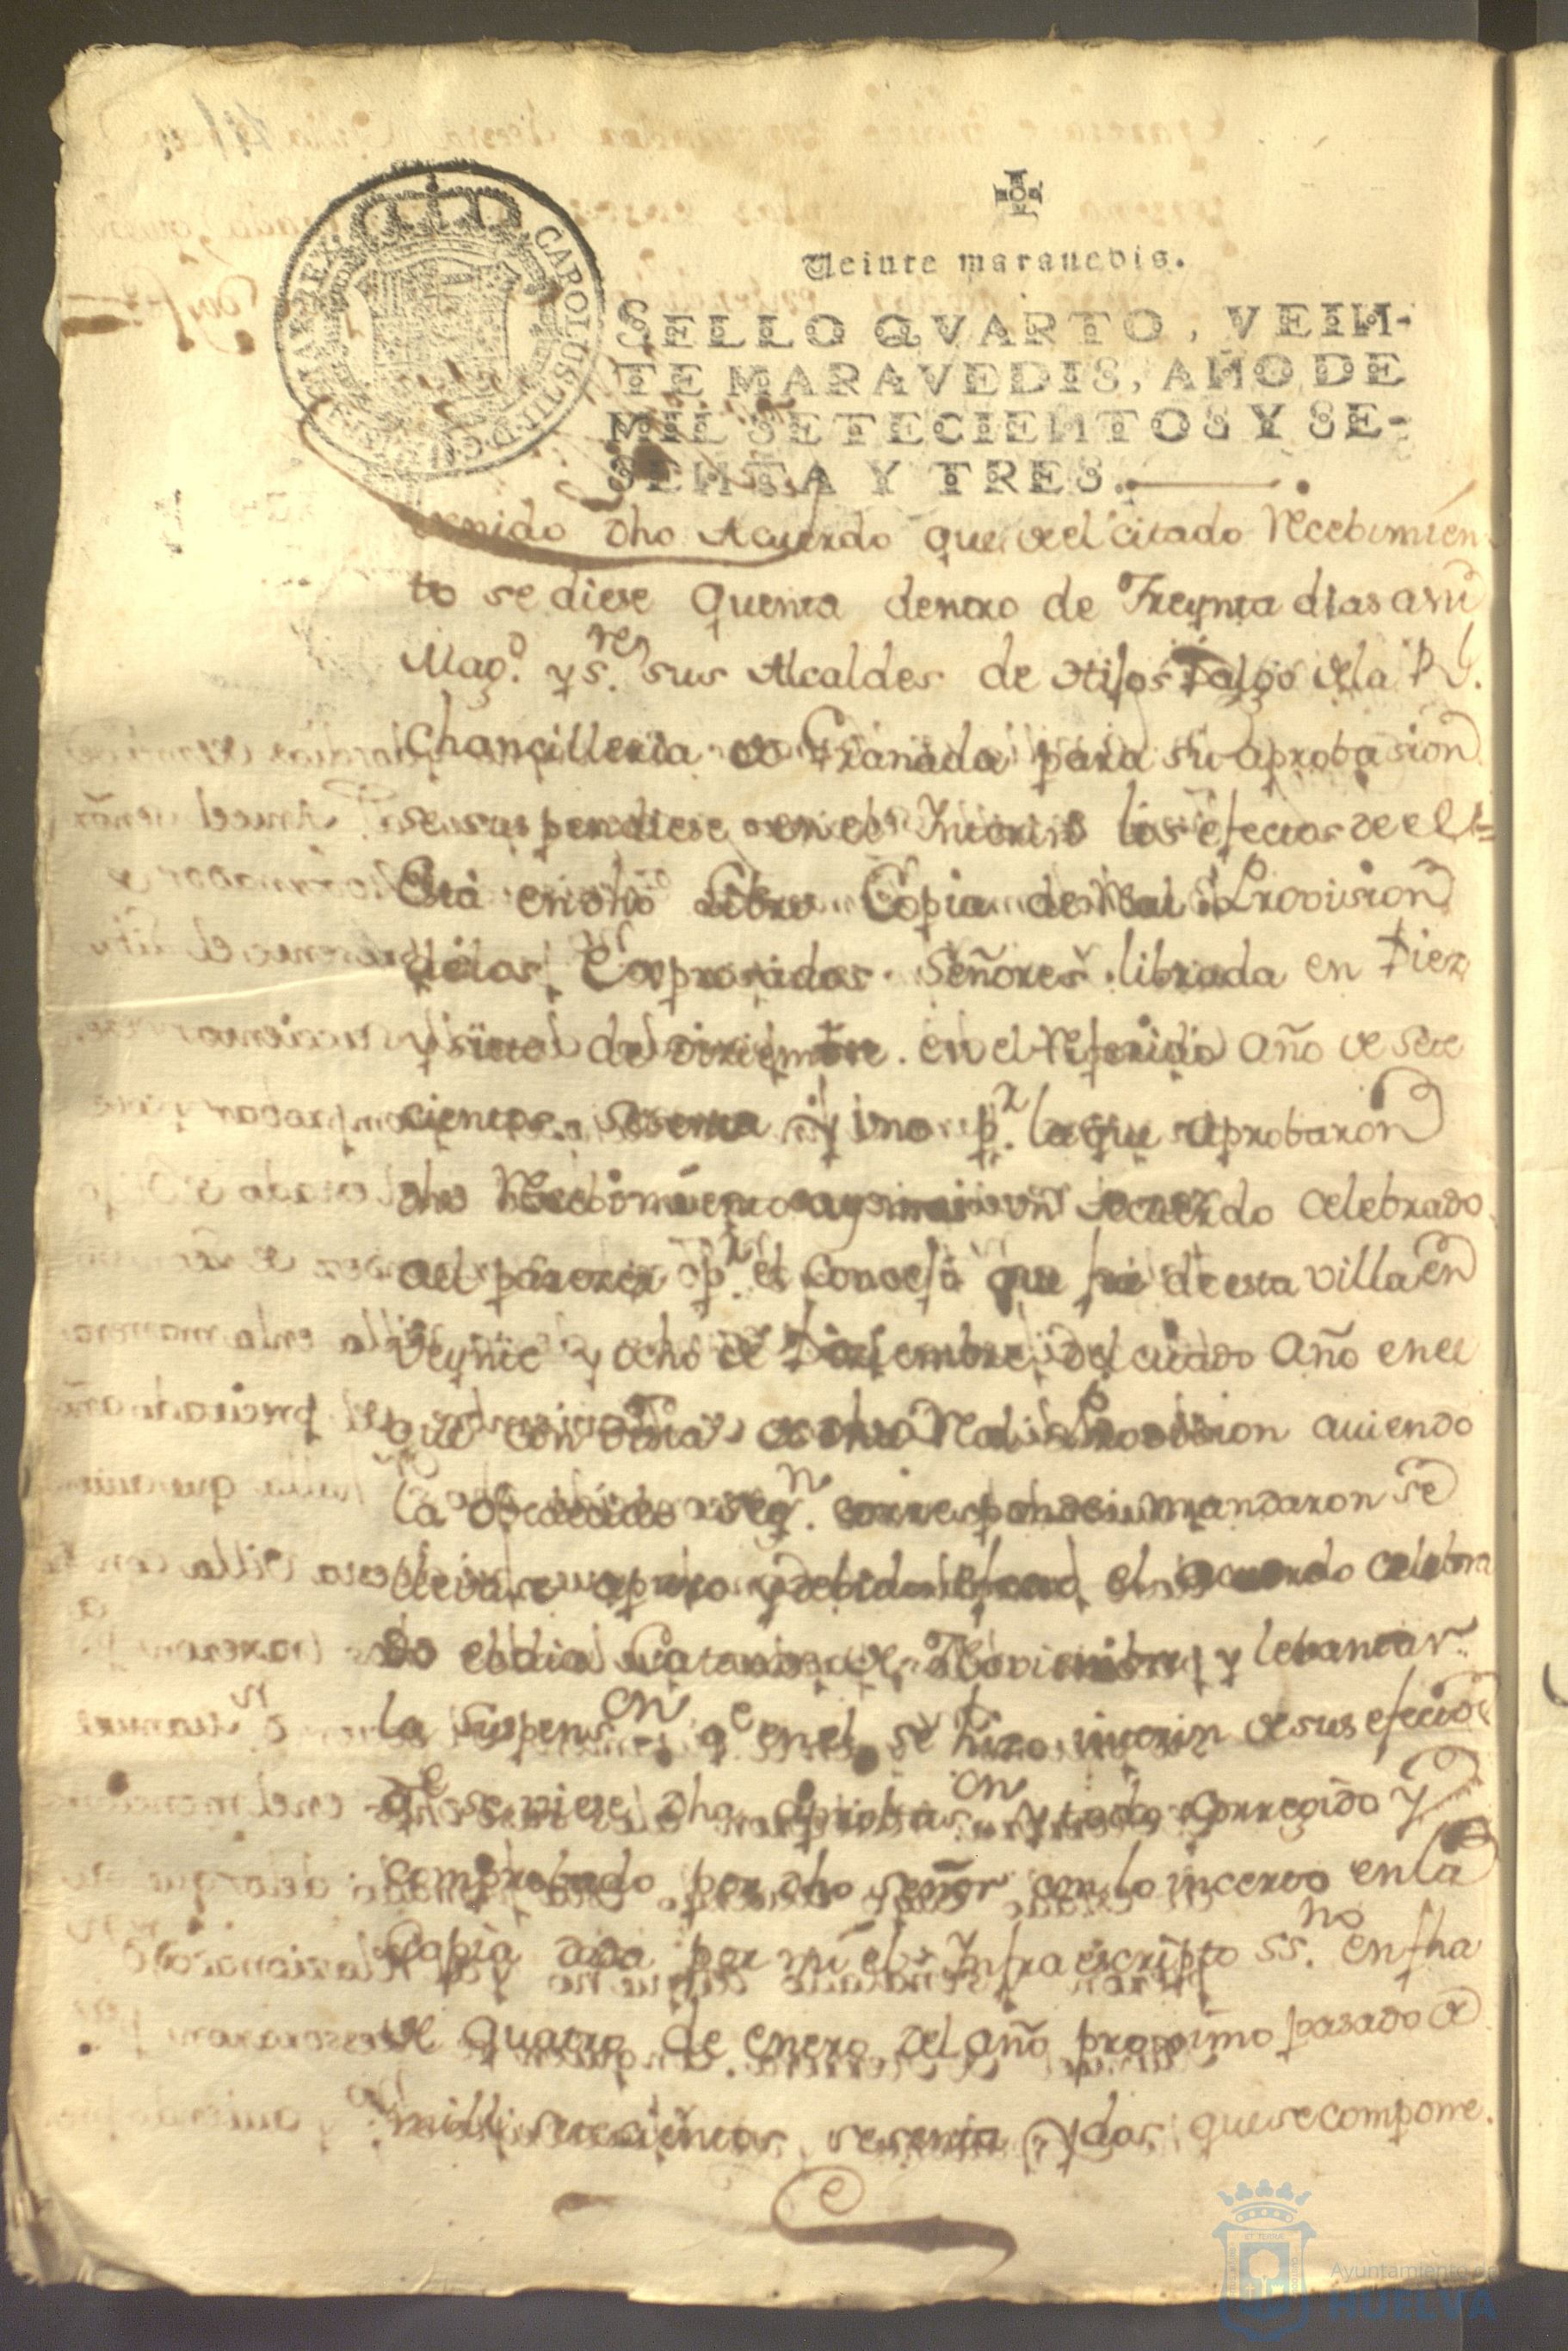 Veinte maravedis.
SELLO QVARTO, VEIN-
TE MARAVEDIS, AÑO DE
MIL SETECIENTOS Y SE-
SENTA Y TRES.
CAROLUS III D G HISPANIAR REX
dho Acuerdo que de el citado Recebimien
to se diese quenta dentro de Treynta dias a su
Magd. y sres. sus Alcaldes de Hijos Dalgo de la Rl.
Chancilleria de Granada para su aprobasion
se suspendiese en el Interin los efectos de el =
Esta en dho Libro Copia de Real Provision
de los Expresados Señores librada en Diez
y siete de Diziembre en el Referido año de sete
cientos sesenta y uno pr. la que aprobaron
dho Recebimiento y un acuerdo celebrado
al parecer pr. el Concejo que fue de esta villa en
Veynte y ocho de Diziembre del citado Año en el
que con vista de dha Real Provision aviendo
la obedecido segn. mandaron se
llevase a puro y debido efecto el acuerdo celebra
do el dia Catorse de Noviembre y lebantar
la Suspenson. qe en el se hizo interin de sus efectos
qe se viese dha aprobason. y todo Corregido y
comprobado por dho señor con lo incerto en la
Copia dada por mi el Infraescripto ssno. en fha
de quatro de enero del año proximo pasado de
mill setecientos sesenta y dos, que se compone.
Ayuntamiento de
HUELVA